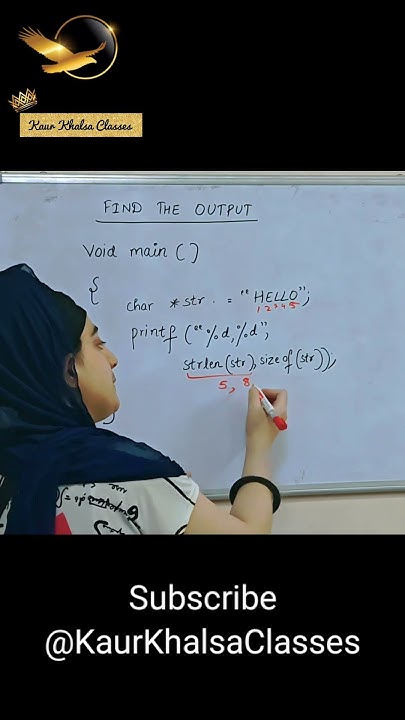 Kaur Khalsa Classes
FIND THE OUTPUT
Void main ()
{
char *str . = "HELLO";
1 2 3 4 5
printf ("%d,%d",
strlen(str), sizeof(str));
5, 8
Subscribe
@KaurKhalsaClasses